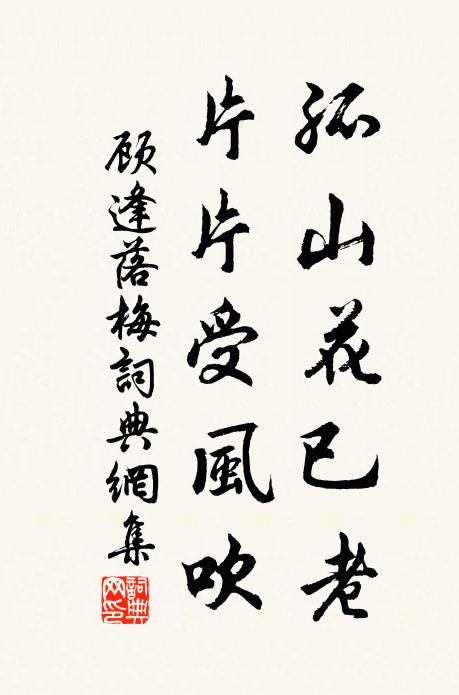 孤山花已老
片片受風吹
顾逢落梅詞典網集
詞典